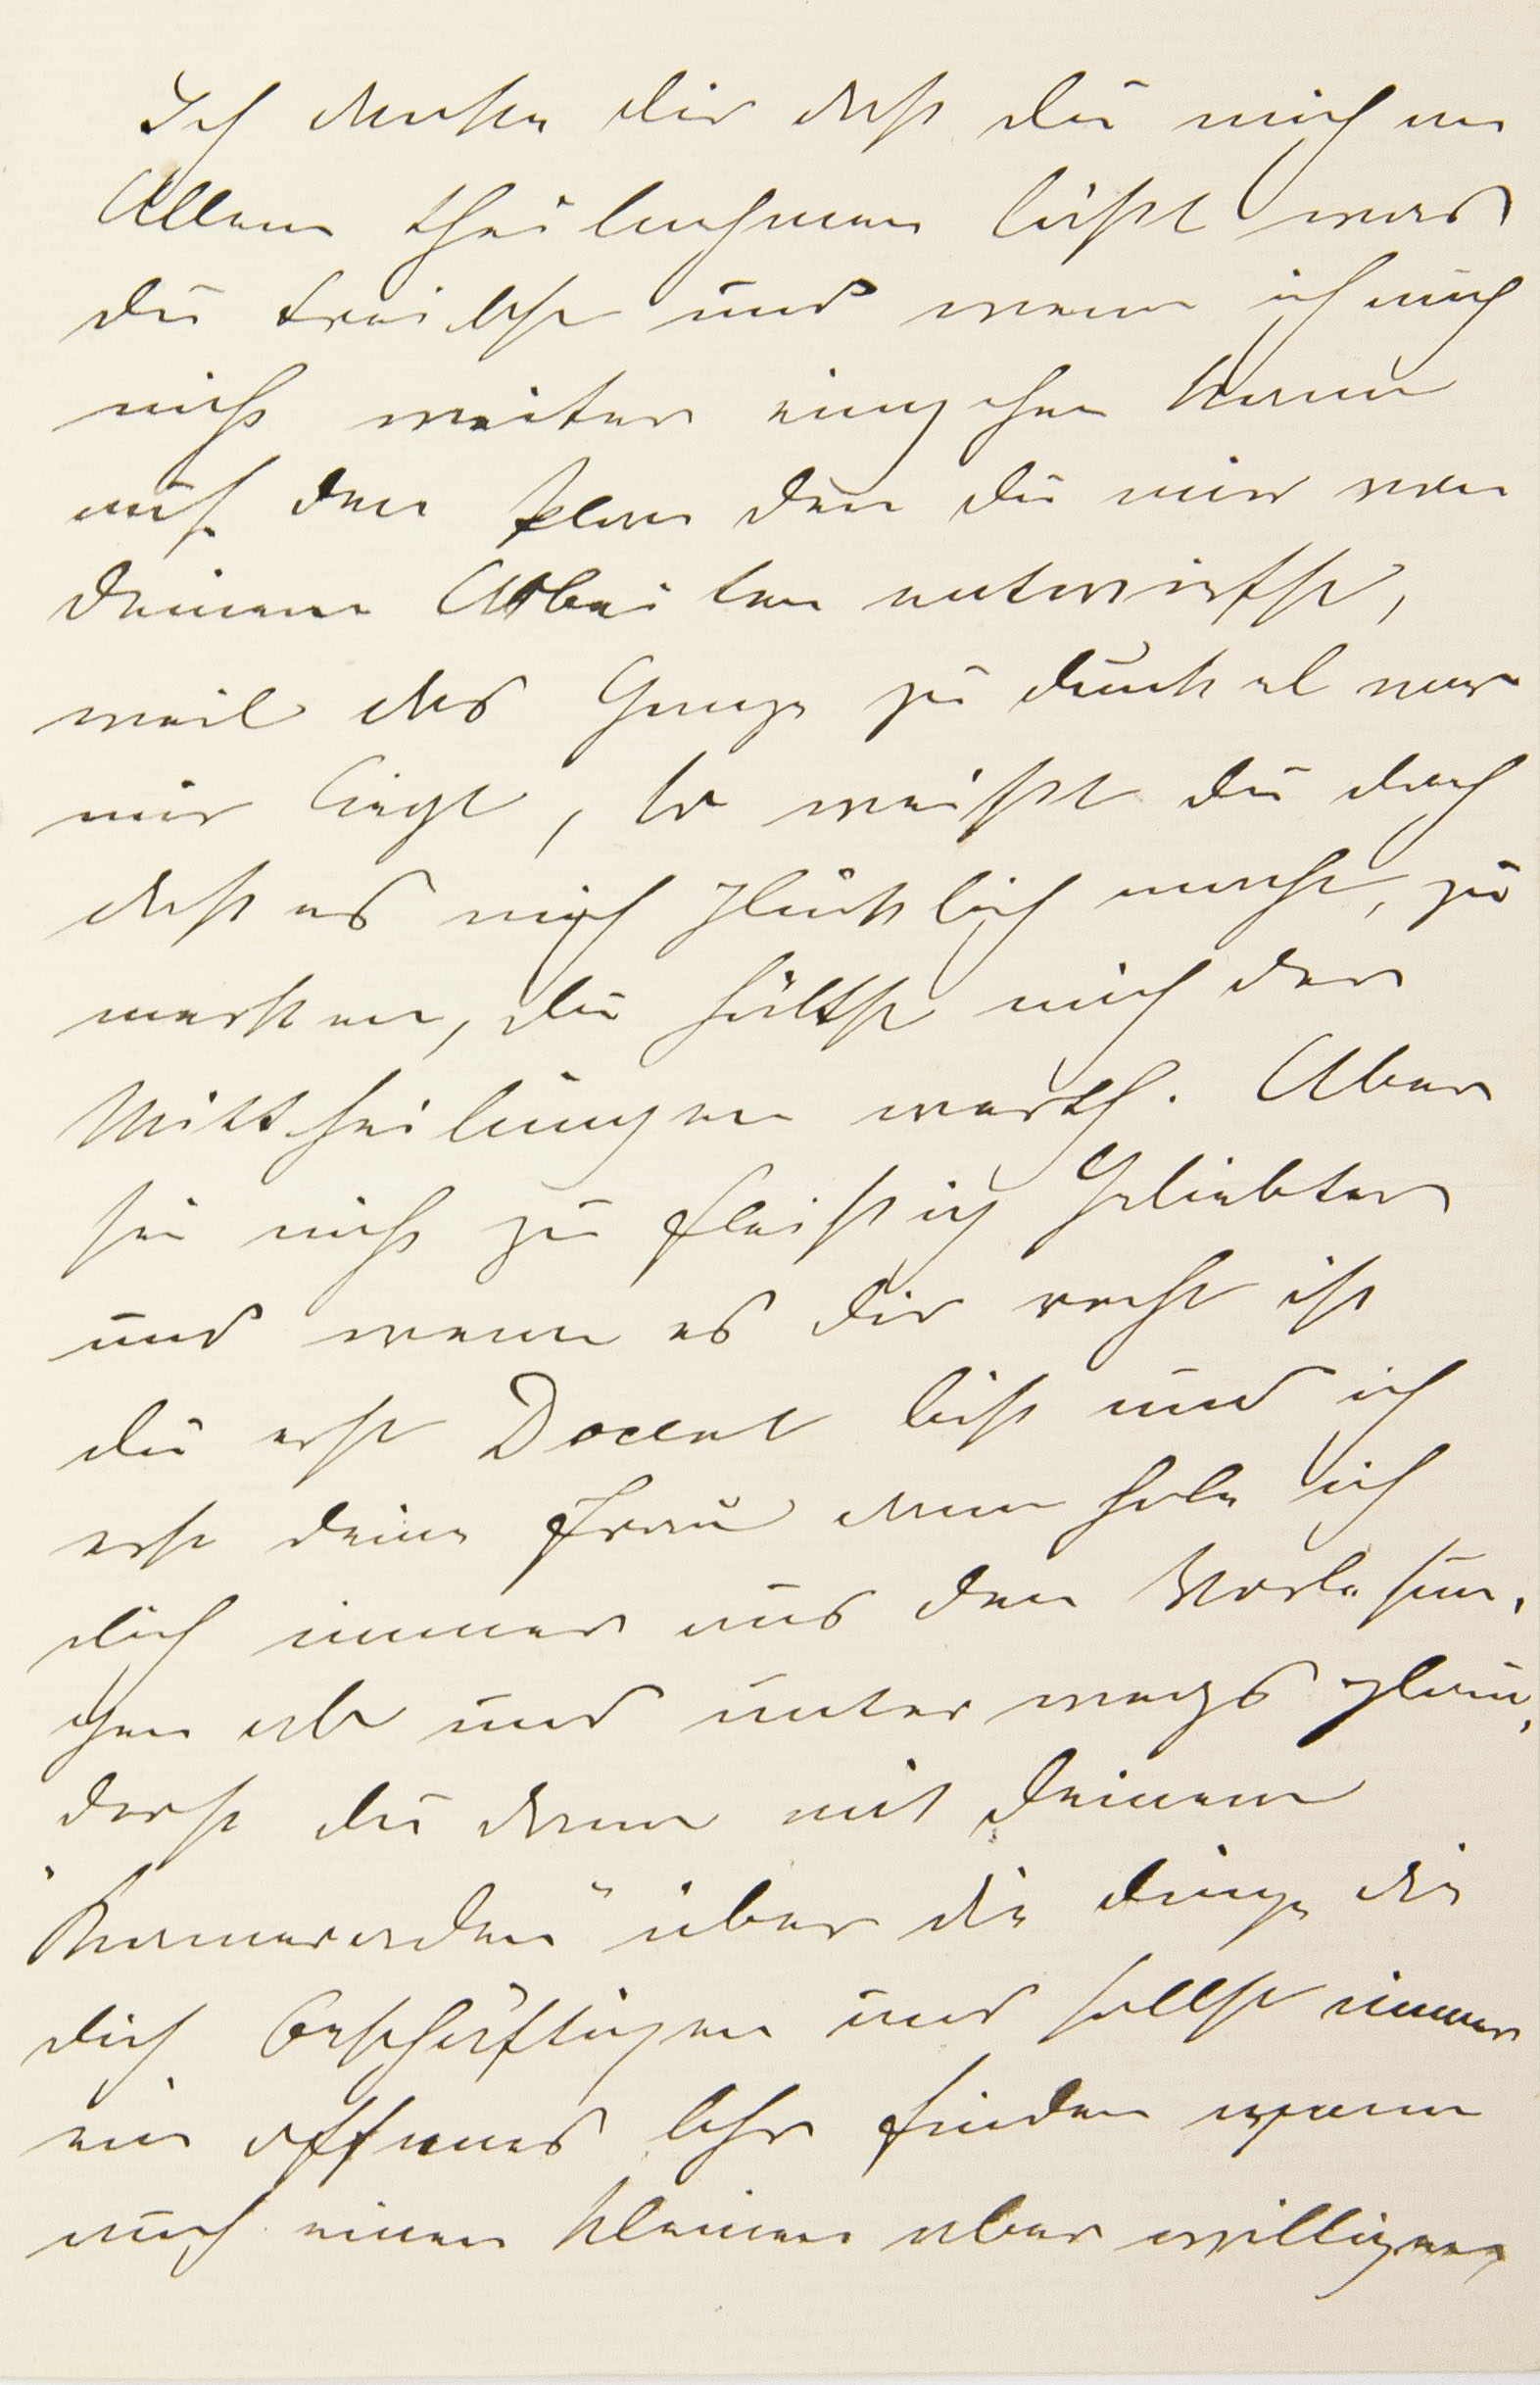 Ich danke dir daß du mich an
Allem theilnehmen läßt was
du treibst und wenn ich auch
nicht weiter eingehen kann
auf den Plan den du mir von
deinen Arbeiten entwirfst,
weil das Ganze zu dunkel vor
mir liegt, so weißt du doch
daß es mich glücklich macht, zu
merken, du hältst mich der
Mittheilungen werth. Aber
sei nicht zu fleißig Geliebter
und wenn es dir recht ist
du erst Docent bist und ich
erst deine Frau dann hole ich
dich immer aus den Vorlesun-
gen ab und unterwegs plau-
derst du dann mit deinem
"Kameraden" über die Dinge die
dich beschäftigen und sollst immer
ein offnes Ohr finden wenn
auch einen kleinen aber willigen,